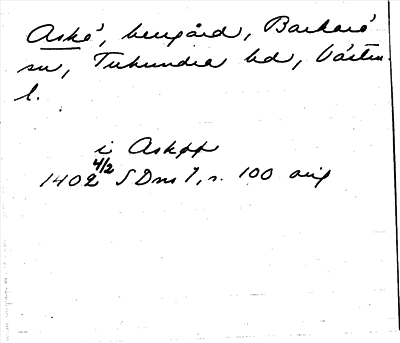 Askö, herrgård, Barkarö
sn, Tuhundra hd, Västm.
l.
i Askøø
1402 4/2 SDns 1, s. 100 orig